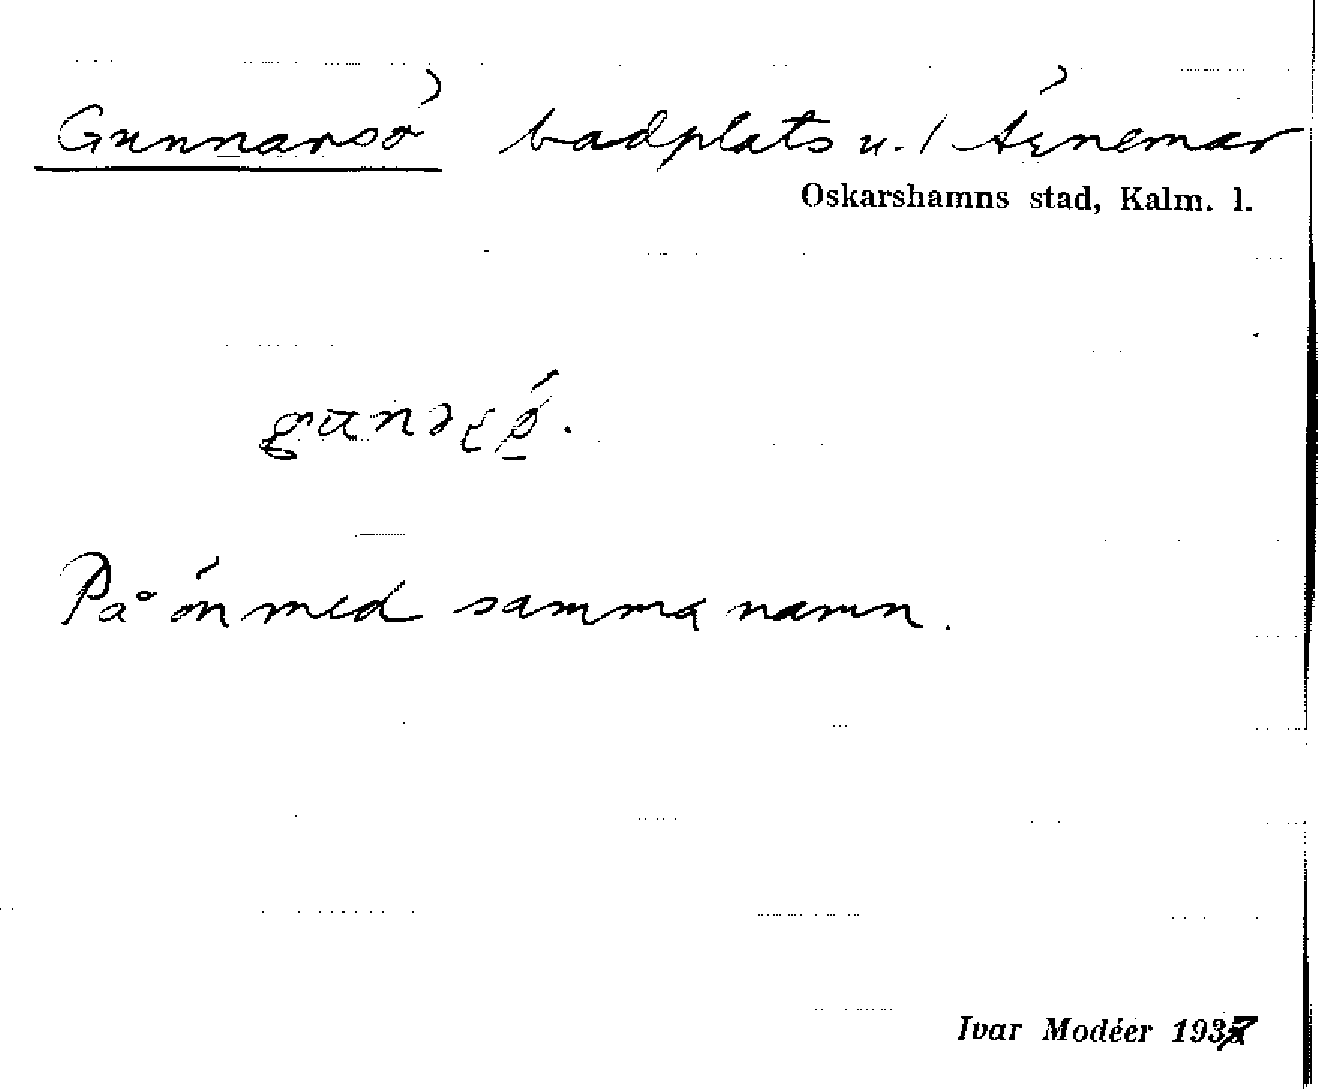 Gunnarsö badplats u. / Ärnemar
Oskarshamns stad, Kalm. l.
På ön med samma namn.
Ivar Modéer 1937